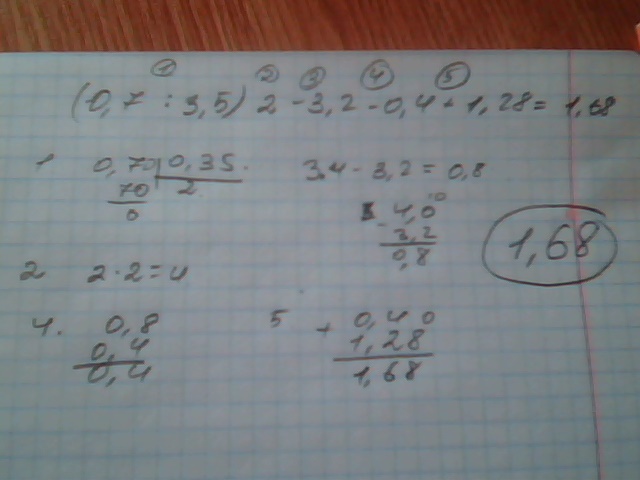 ① ② ③ ④ ⑤
(0,7 : 3,5) 2 - 3,2 - 0,4 + 1,28 = 1,68
1 0,70 0,35. 3.4 - 3,2 = 0,8
70 2
0
4,0
- 3,2
0,8
1,68
2 2·2=4
4. 0,8
0,4
0,4
5 0,40
+ 1,28
1,68